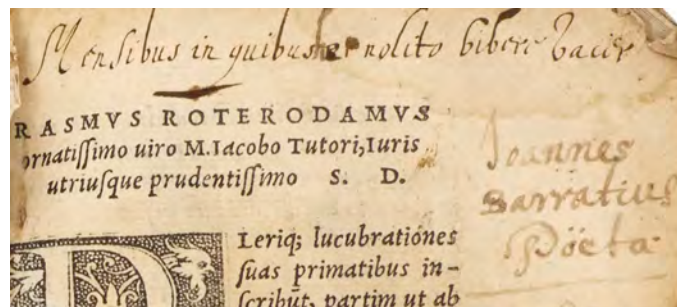 Mensibus in quibus er nolito bibere
RASMVS ROTERODAMVS
ornatissimo uiro M.Iacobo Tutori, Iuris
utriusque prudentissimo S. D.
Joannes
Barratius
Poëta
Leriq; lucubrationes
suas primatibus in-
scribūt, partim ut ab